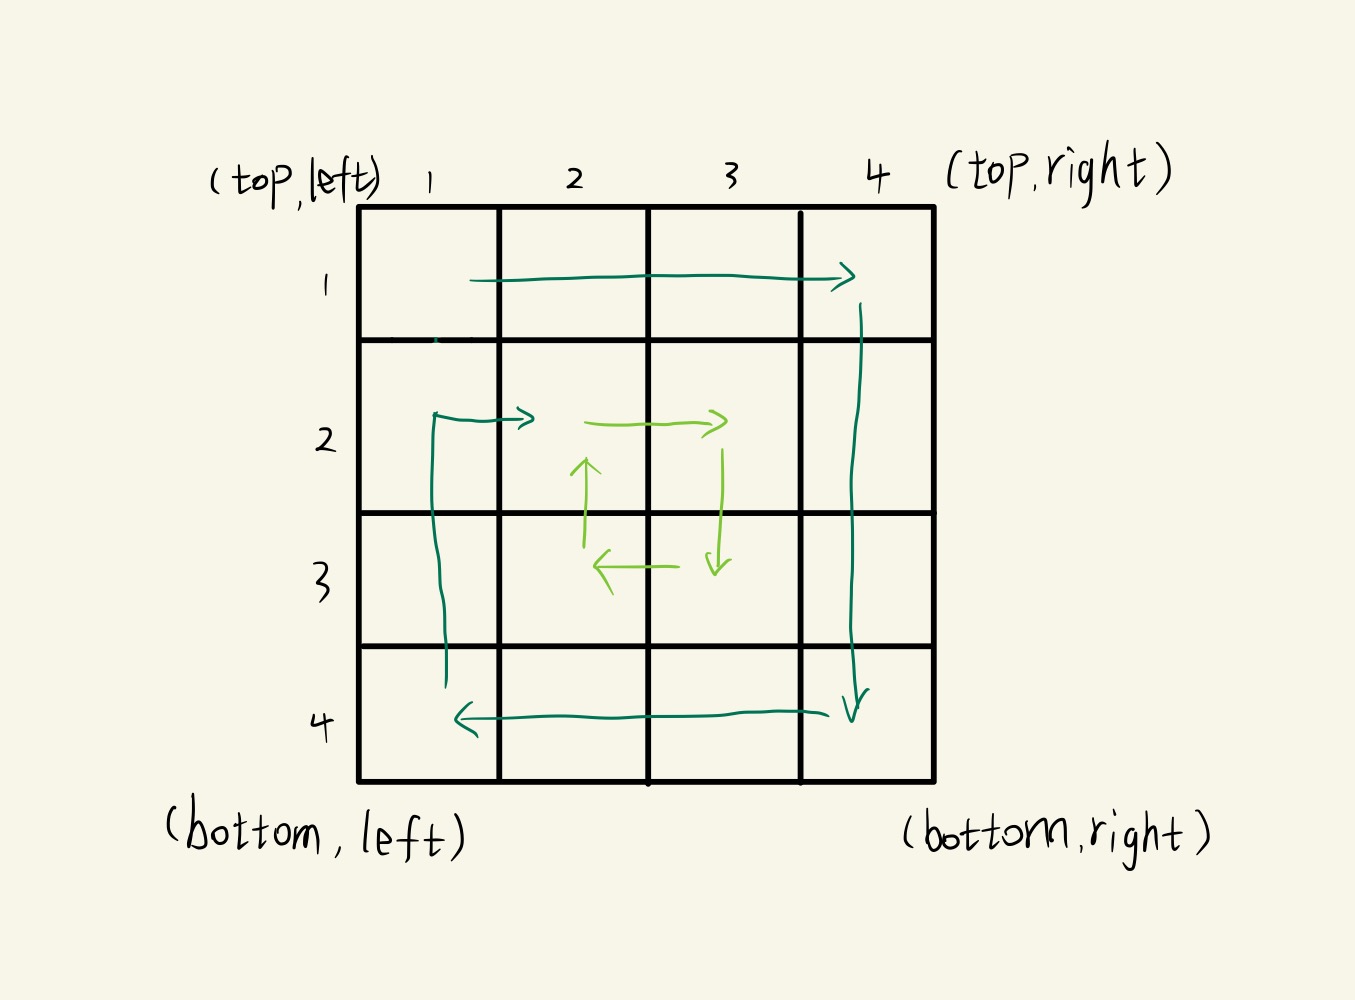 (top,left) 1 2 3 4 (top,right)
1
2
3
4
(bottom, left) (bottom,right)